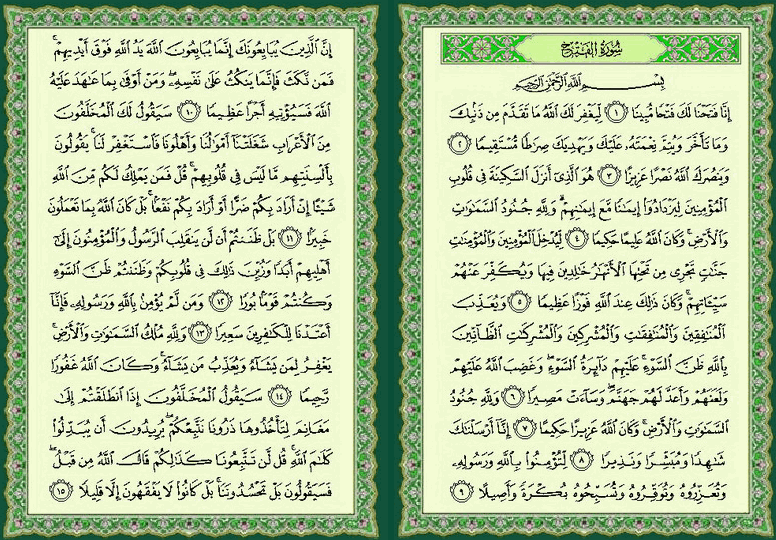 سُورَةُ الفَتْحِ
بِسْمِ اللَّهِ الرَّحْمَٰنِ الرَّحِيمِ
إِنَّا فَتَحْنَا لَكَ فَتْحًا مُّبِينًا ١ لِّيَغْفِرَ لَكَ اللَّهُ مَا تَقَدَّمَ مِن ذَنۢبِكَ
وَمَا تَأَخَّرَ وَيُتِمَّ نِعْمَتَهُۥ عَلَيْكَ وَيَهْدِيَكَ صِرَٰطًا مُّسْتَقِيمًا ٢
وَيَنصُرَكَ اللَّهُ نَصْرًا عَزِيزًا ٣ هُوَ الَّذِىٓ أَنزَلَ السَّكِينَةَ فِى قُلُوبِ
الْمُؤْمِنِينَ لِيَزْدَادُوٓا۟ إِيمَٰنًا مَّعَ إِيمَٰنِهِمْ ۗ وَلِلَّهِ جُنُودُ السَّمَٰوَٰتِ
وَالْأَرْضِ ۚ وَكَانَ اللَّهُ عَلِيمًا حَكِيمًا ٤ لِّيُدْخِلَ الْمُؤْمِنِينَ وَالْمُؤْمِنَٰتِ
جَنَّٰتٍ تَجْرِى مِن تَحْتِهَا الْأَنْهَٰرُ خَٰلِدِينَ فِيهَا وَيُكَفِّرَ عَنْهُمْ
سَيِّـَٔاتِهِمْ ۚ وَكَانَ ذَٰلِكَ عِندَ اللَّهِ فَوْزًا عَظِيمًا ٥ وَيُعَذِّبَ
الْمُنَٰفِقِينَ وَالْمُنَٰفِقَٰتِ وَالْمُشْرِكِينَ وَالْمُشْرِكَٰتِ الظَّآنِّينَ
بِاللَّهِ ظَنَّ السَّوْءِ ۚ عَلَيْهِمْ دَآئِرَةُ السَّوْءِ ۖ وَغَضِبَ اللَّهُ عَلَيْهِمْ
وَلَعَنَهُمْ وَأَعَدَّ لَهُمْ جَهَنَّمَ ۖ وَسَآءَتْ مَصِيرًا ٦ وَلِلَّهِ جُنُودُ
السَّمَٰوَٰتِ وَالْأَرْضِ ۚ وَكَانَ اللَّهُ عَزِيزًا حَكِيمًا ٧ إِنَّآ أَرْسَلْنَٰكَ
شَٰهِدًا وَمُبَشِّرًا وَنَذِيرًا ٨ لِّتُؤْمِنُوا۟ بِاللَّهِ وَرَسُولِهِۦ
وَتُعَزِّرُوهُ وَتُوَقِّرُوهُ وَتُسَبِّحُوهُ بُكْرَةً وَأَصِيلًا ٩
إِنَّ الَّذِينَ يُبَايِعُونَكَ إِنَّمَا يُبَايِعُونَ اللَّهَ يَدُ اللَّهِ فَوْقَ أَيْدِيهِمْ ۚ
فَمَن نَّكَثَ فَإِنَّمَا يَنكُثُ عَلَىٰ نَفْسِهِۦ ۖ وَمَنْ أَوْفَىٰ بِمَا عَٰهَدَ عَلَيْهُ
اللَّهَ فَسَيُؤْتِيهِ أَجْرًا عَظِيمًا ١٠ سَيَقُولُ لَكَ الْمُخَلَّفُونَ
مِنَ الْأَعْرَابِ شَغَلَتْنَآ أَمْوَٰلُنَا وَأَهْلُونَا فَاسْتَغْفِرْ لَنَا ۚ يَقُولُونَ
بِأَلْسِنَتِهِم مَّا لَيْسَ فِى قُلُوبِهِمْ ۚ قُلْ فَمَن يَمْلِكُ لَكُم مِّنَ اللَّهِ
شَيْـًٔا إِنْ أَرَادَ بِكُمْ ضَرًّا أَوْ أَرَادَ بِكُمْ نَفْعًۢا ۚ بَلْ كَانَ اللَّهُ بِمَا تَعْمَلُونَ
خَبِيرًۢا ١١ بَلْ ظَنَنتُمْ أَن لَّن يَنقَلِبَ الرَّسُولُ وَالْمُؤْمِنُونَ إِلَىٰٓ
أَهْلِيهِمْ أَبَدًا وَزُيِّنَ ذَٰلِكَ فِى قُلُوبِكُمْ وَظَنَنتُمْ ظَنَّ السَّوْءِ
وَكُنتُمْ قَوْمًۢا بُورًا ١٢ وَمَن لَّمْ يُؤْمِنۢ بِاللَّهِ وَرَسُولِهِۦ فَإِنَّآ
أَعْتَدْنَا لِلْكَٰفِرِينَ سَعِيرًا ١٣ وَلِلَّهِ مُلْكُ السَّمَٰوَٰتِ وَالْأَرْضِ ۚ
يَغْفِرُ لِمَن يَشَآءُ وَيُعَذِّبُ مَن يَشَآءُ ۚ وَكَانَ اللَّهُ غَفُورًا
رَّحِيمًا ١٤ سَيَقُولُ الْمُخَلَّفُونَ إِذَا انطَلَقْتُمْ إِلَىٰ
مَغَانِمَ لِتَأْخُذُوهَا ذَرُونَا نَتَّبِعْكُمْ ۖ يُرِيدُونَ أَن يُبَدِّلُوا۟
كَلَٰمَ اللَّهِ ۚ قُل لَّن تَتَّبِعُونَا كَذَٰلِكُمْ قَالَ اللَّهُ مِن قَبْلُ ۖ
فَسَيَقُولُونَ بَلْ تَحْسُدُونَنَا ۚ بَلْ كَانُوا۟ لَا يَفْقَهُونَ إِلَّا قَلِيلًا ١٥